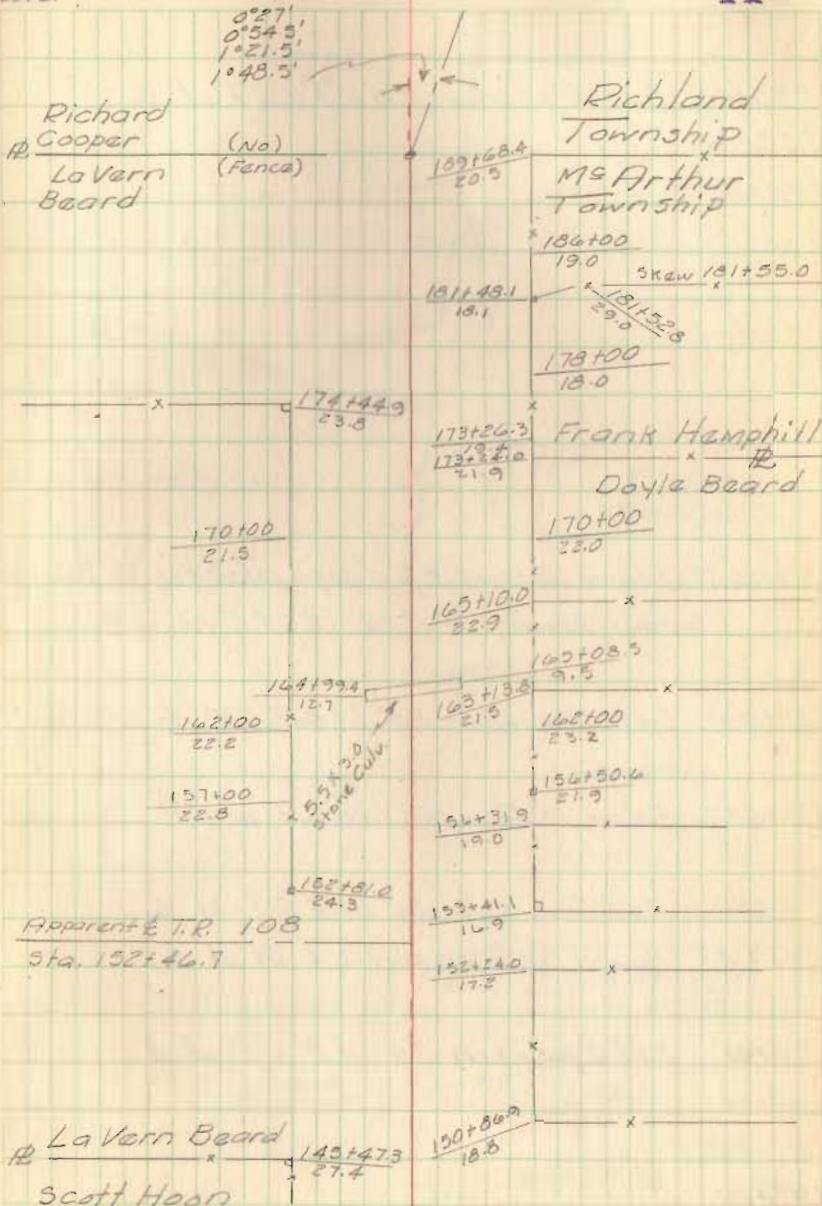 0°27'
0°54.5'
1°21.5'
1°48.5'
Richard
Cooper
(No)
(Fence)
PL
La Vern
Beard
Richland
Township
189+68.4
20.5
Mc Arthur
Township
186+00
19.0
Skew 181+55.0
181+48.1
18.1
181+52.8
29.0
178+00
18.0
174+44.9
23.8
173+26.3
173+24.0
21.9
Frank Hemphill
PL
Doyle Beard
170+00
21.5
170+00
22.0
165+10.0
22.9
165+08.5
9.5
164+99.4
12.7
163+13.8
21.5
162+00
22.2
162+00
23.2
5.5 x 3.0
Stone Culv.
157+00
22.8
156+50.6
21.9
156+31.9
19.0
152+81.0
24.3
153+41.1
16.9
Apparent ℄ T.R. 108
Sta. 152+46.7
152+24.0
17.2
150+86.9
18.8
PL
La Vern Beard
145+47.3
27.4
Scott Hoon